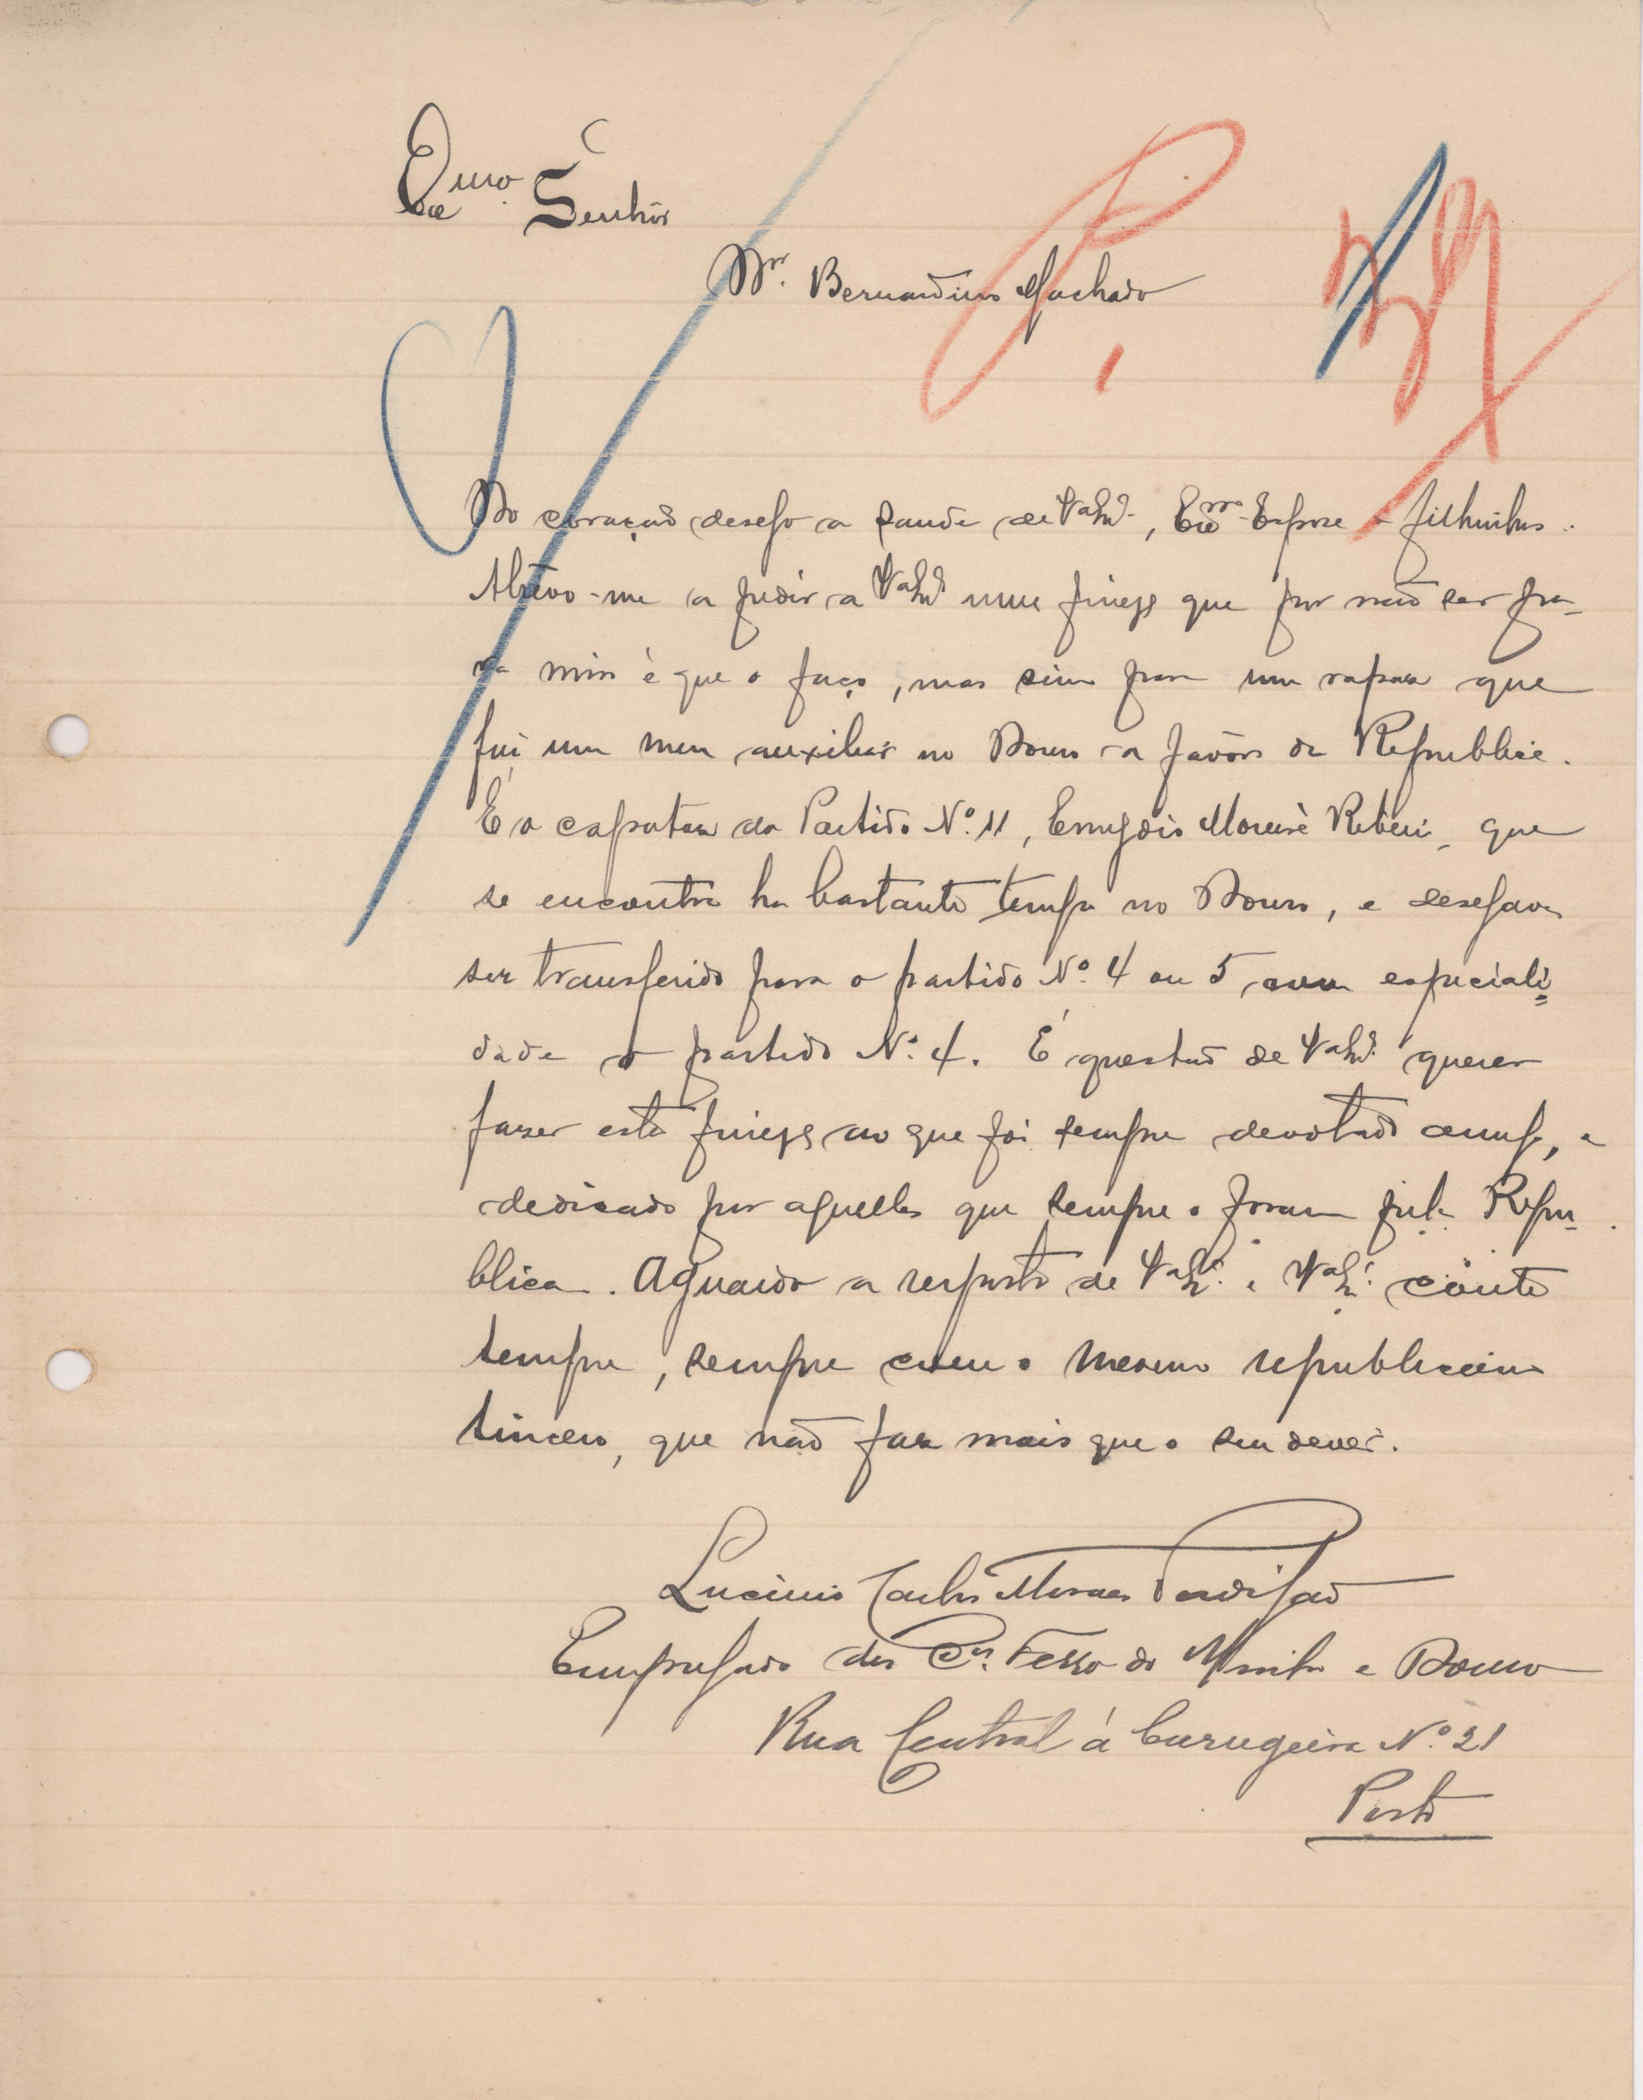 Exmo. Senhôr
Dr. Bernardino Machado
Do coração desejo a saude de V. Exa., Exma Espoza e filhinhos.
Atrevo-me a pedir a V. Exa. uma fineza que por não ser pa-
ra mim é que o faço, mas sim para um rapaz que
foi um meu auxiliar no Douro a favôr da Republica.
É o capataz do Partido Nº. 11, Ribeiro, que
se encontra ha bastante tempo no Douro, e desejava
ser transferido para o partido Nº. 4 ou 5, com especiali-
dade o partido Nº. 4. É questão de V. Exa. querer
fazer esta fineza ao que foi sempre devotado amigo, e
dedicado por aquelles que sempre o foram pela Repu-
blica. Aguardo a resposta de V. Exa. e V. Exa. conte
sempre, sempre com o mesmo republicano
sincero, que não faz mais que o seu dever.
Lucinio Carlos Moraes Perdigão
Empregado dos C.os Ferro do Minho e Douro
Rua Central á Corugeira Nº. 21
Porto